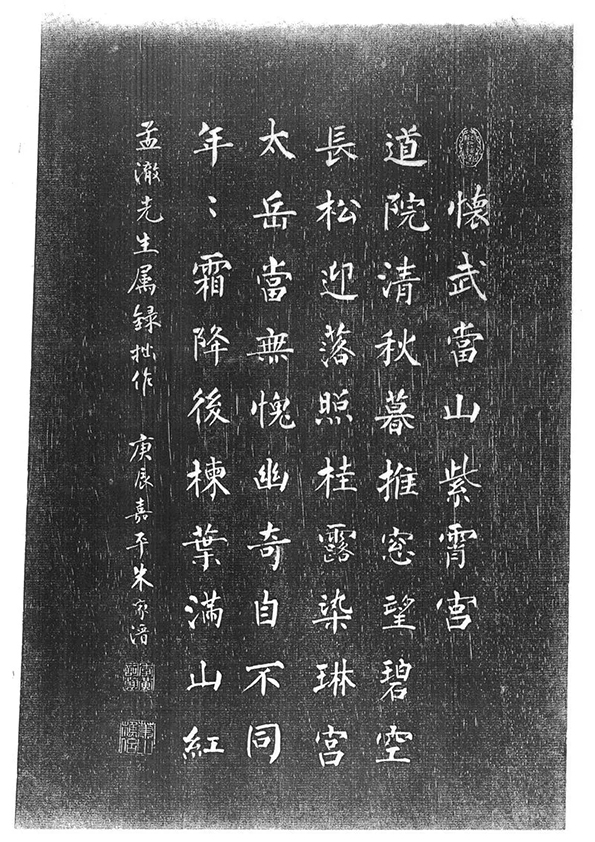 懷武當山紫霄宮
道院清秋暮推窓望碧空
長松迎落照桂露染琳宮
太岳當無愧幽奇自不同
年〻霜降後楝葉滿山紅
孟澈先生属録拙作 庚辰嘉平朱家溍